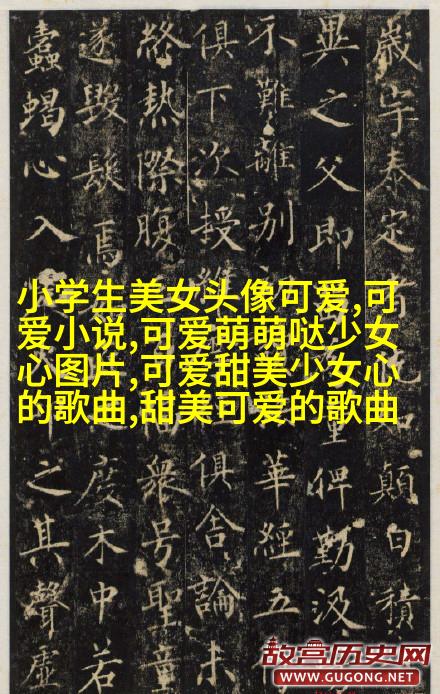 歲字泰定
顛白積
異之父即
童俾勤汲
不難離別
華經五
俱下次授
俱舍論未
終熱際腹
眾号聖童
遂毀髮焉
度木中若
蠹蝎心入
之其聲虛
小学生美女头像可爱,可
爱小说,可爱萌萌哒少女
心图片,可爱甜美少女心
的歌曲,甜美可爱的歌曲
故宫历史网
WWW.GUGONG.NET